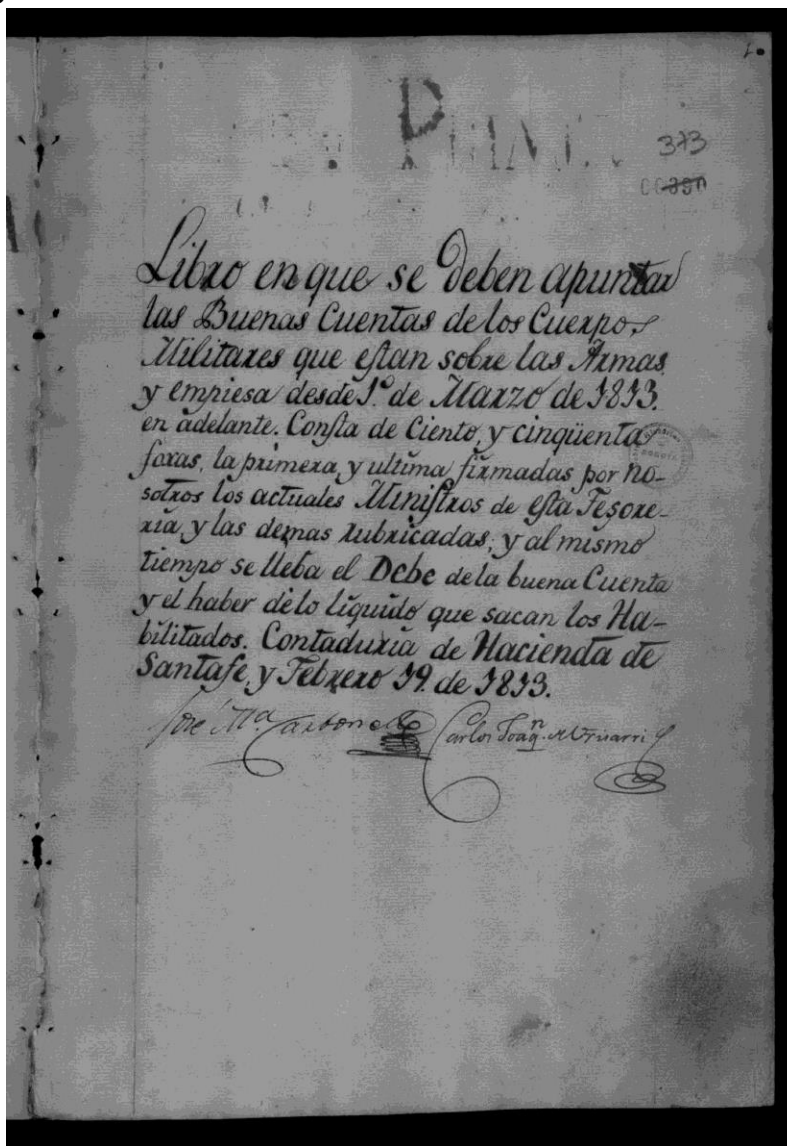 1.
373
00390
Libro en que se deben apuntar
las Buenas Cuentas de los Cuerpos
Militares que estan sobre las Armas,
y empiesa desde 1.º de Marzo de 1813.
en adelante. Consta de Ciento, y cinqüenta
foxas, la primera, y ultima firmadas por no-
sotros los actuales Ministros de esta Tesore-
ria, y las demas rubricadas; y al mismo
tiempo se lleba el Debe de la buena Cuenta
y el haber de lo liquido que sacan los Ha-
bilitados. Contaduria de Hacienda de
Santafe, y Febrero 19. de 1813.
José Mª. Carbonell Carlos Joaqⁿ. de Urisarri